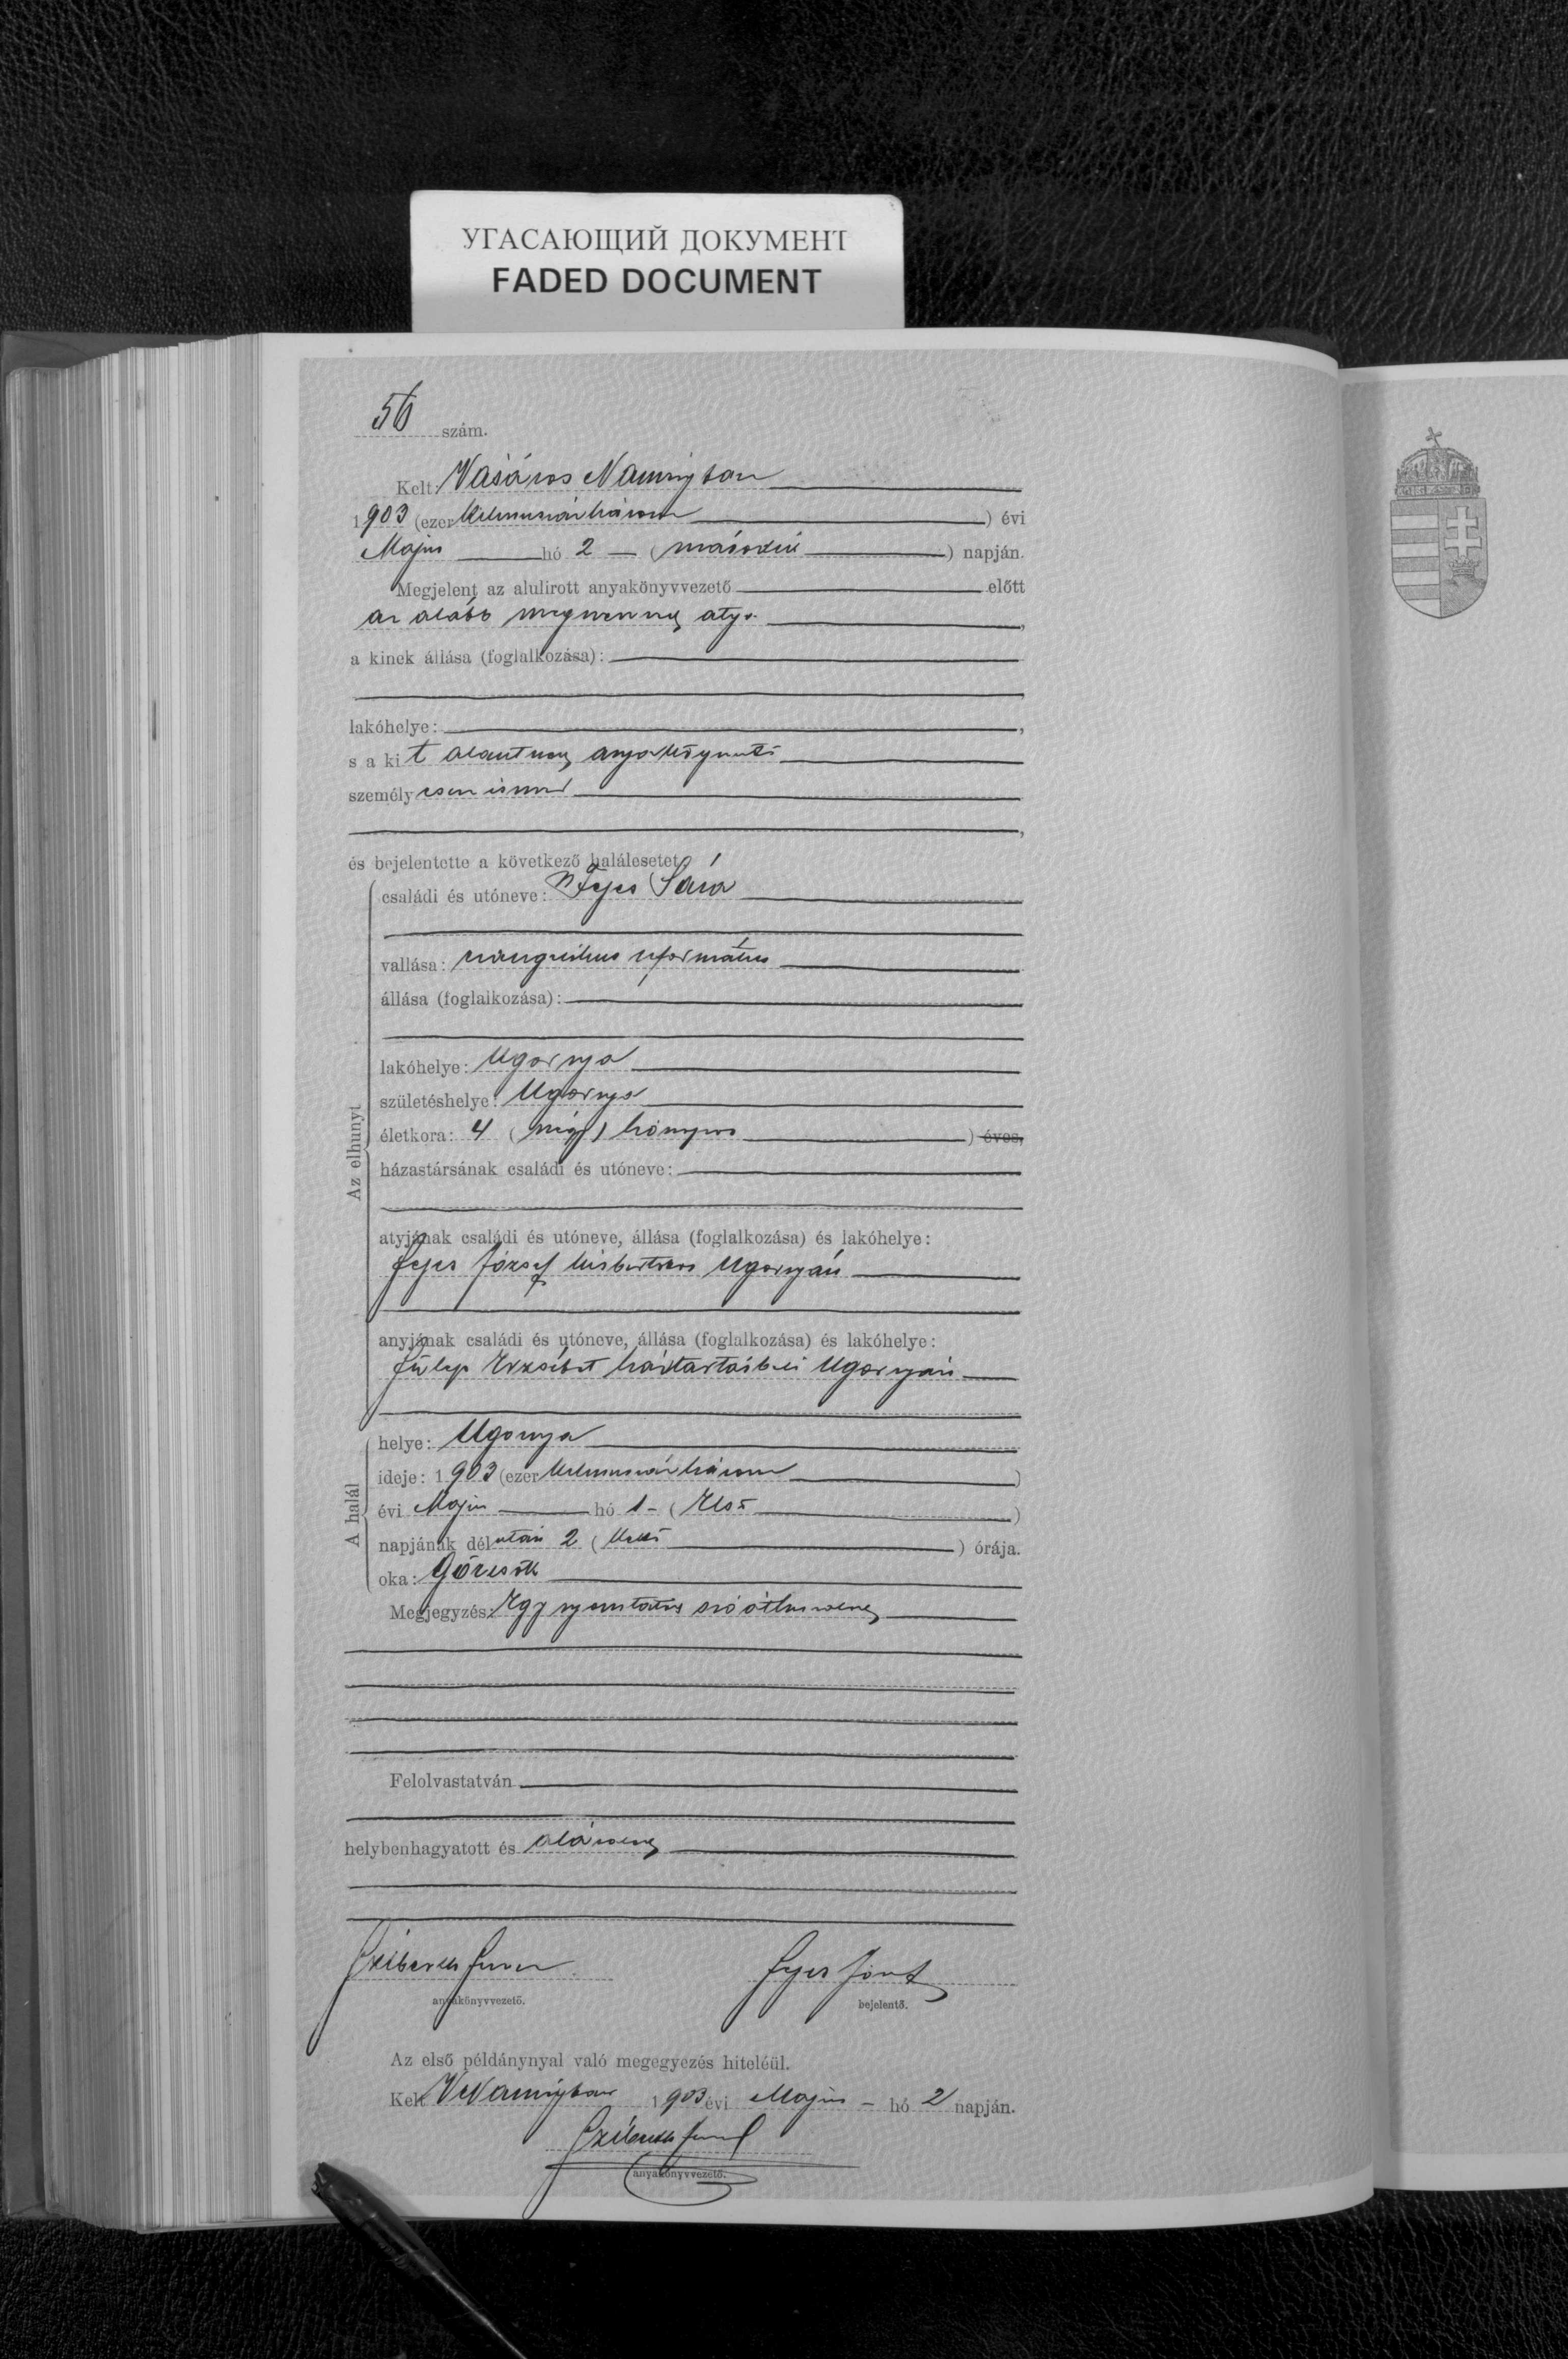 УГАСАЮЩИЙ ДОКУМЕНТ
FADED DOCUMENT
56 szám.
Kelt: Vásáros Naményban
1903 (ezerkilenczszázhárom) évi
Május hó 2 (második) napján.
Megjelent az alulirott anyakönyvvezető előtt
az alább megnevezett atya,
a kinek állása (foglalkozása):
lakóhelye:
s a kit alantirott anyakönyvvezető
személyesen ismer,
és bejelentette a következő halálesetet:
Az elhunyt
családi és utóneve: Fejes Sára
vallása: evangelikus református
állása (foglalkozása):
lakóhelye: Ugornya
születéshelye: Ugornya
életkora: 4 (négy) hónapos ) éves,
házastársának családi és utóneve:
atyjának családi és utóneve, állása (foglalkozása) és lakóhelye:
Fejes József kisbirtokos Ugornyán
anyjának családi és utóneve, állása (foglalkozása) és lakóhelye:
Fülep Erzsébet háztartásbeli Ugornyán
A halál
helye: Ugornya
ideje: 1903 (ezerkilenczszázhárom)
évi Május hó 1 - (Első)
napjának délután 2 (kettő) órája.
oka: Görcsök
Megjegyzés: Egy nyomtatott szó
Felolvastatván
helybenhagyatott és aláíratott
anyakönyvvezető.
Fejes
bejelentő.
Az első példánynyal való megegyezés hiteléül.
Kelt VNaményban 1903 évi Május - hó 2 napján.
anyakönyvvezető.